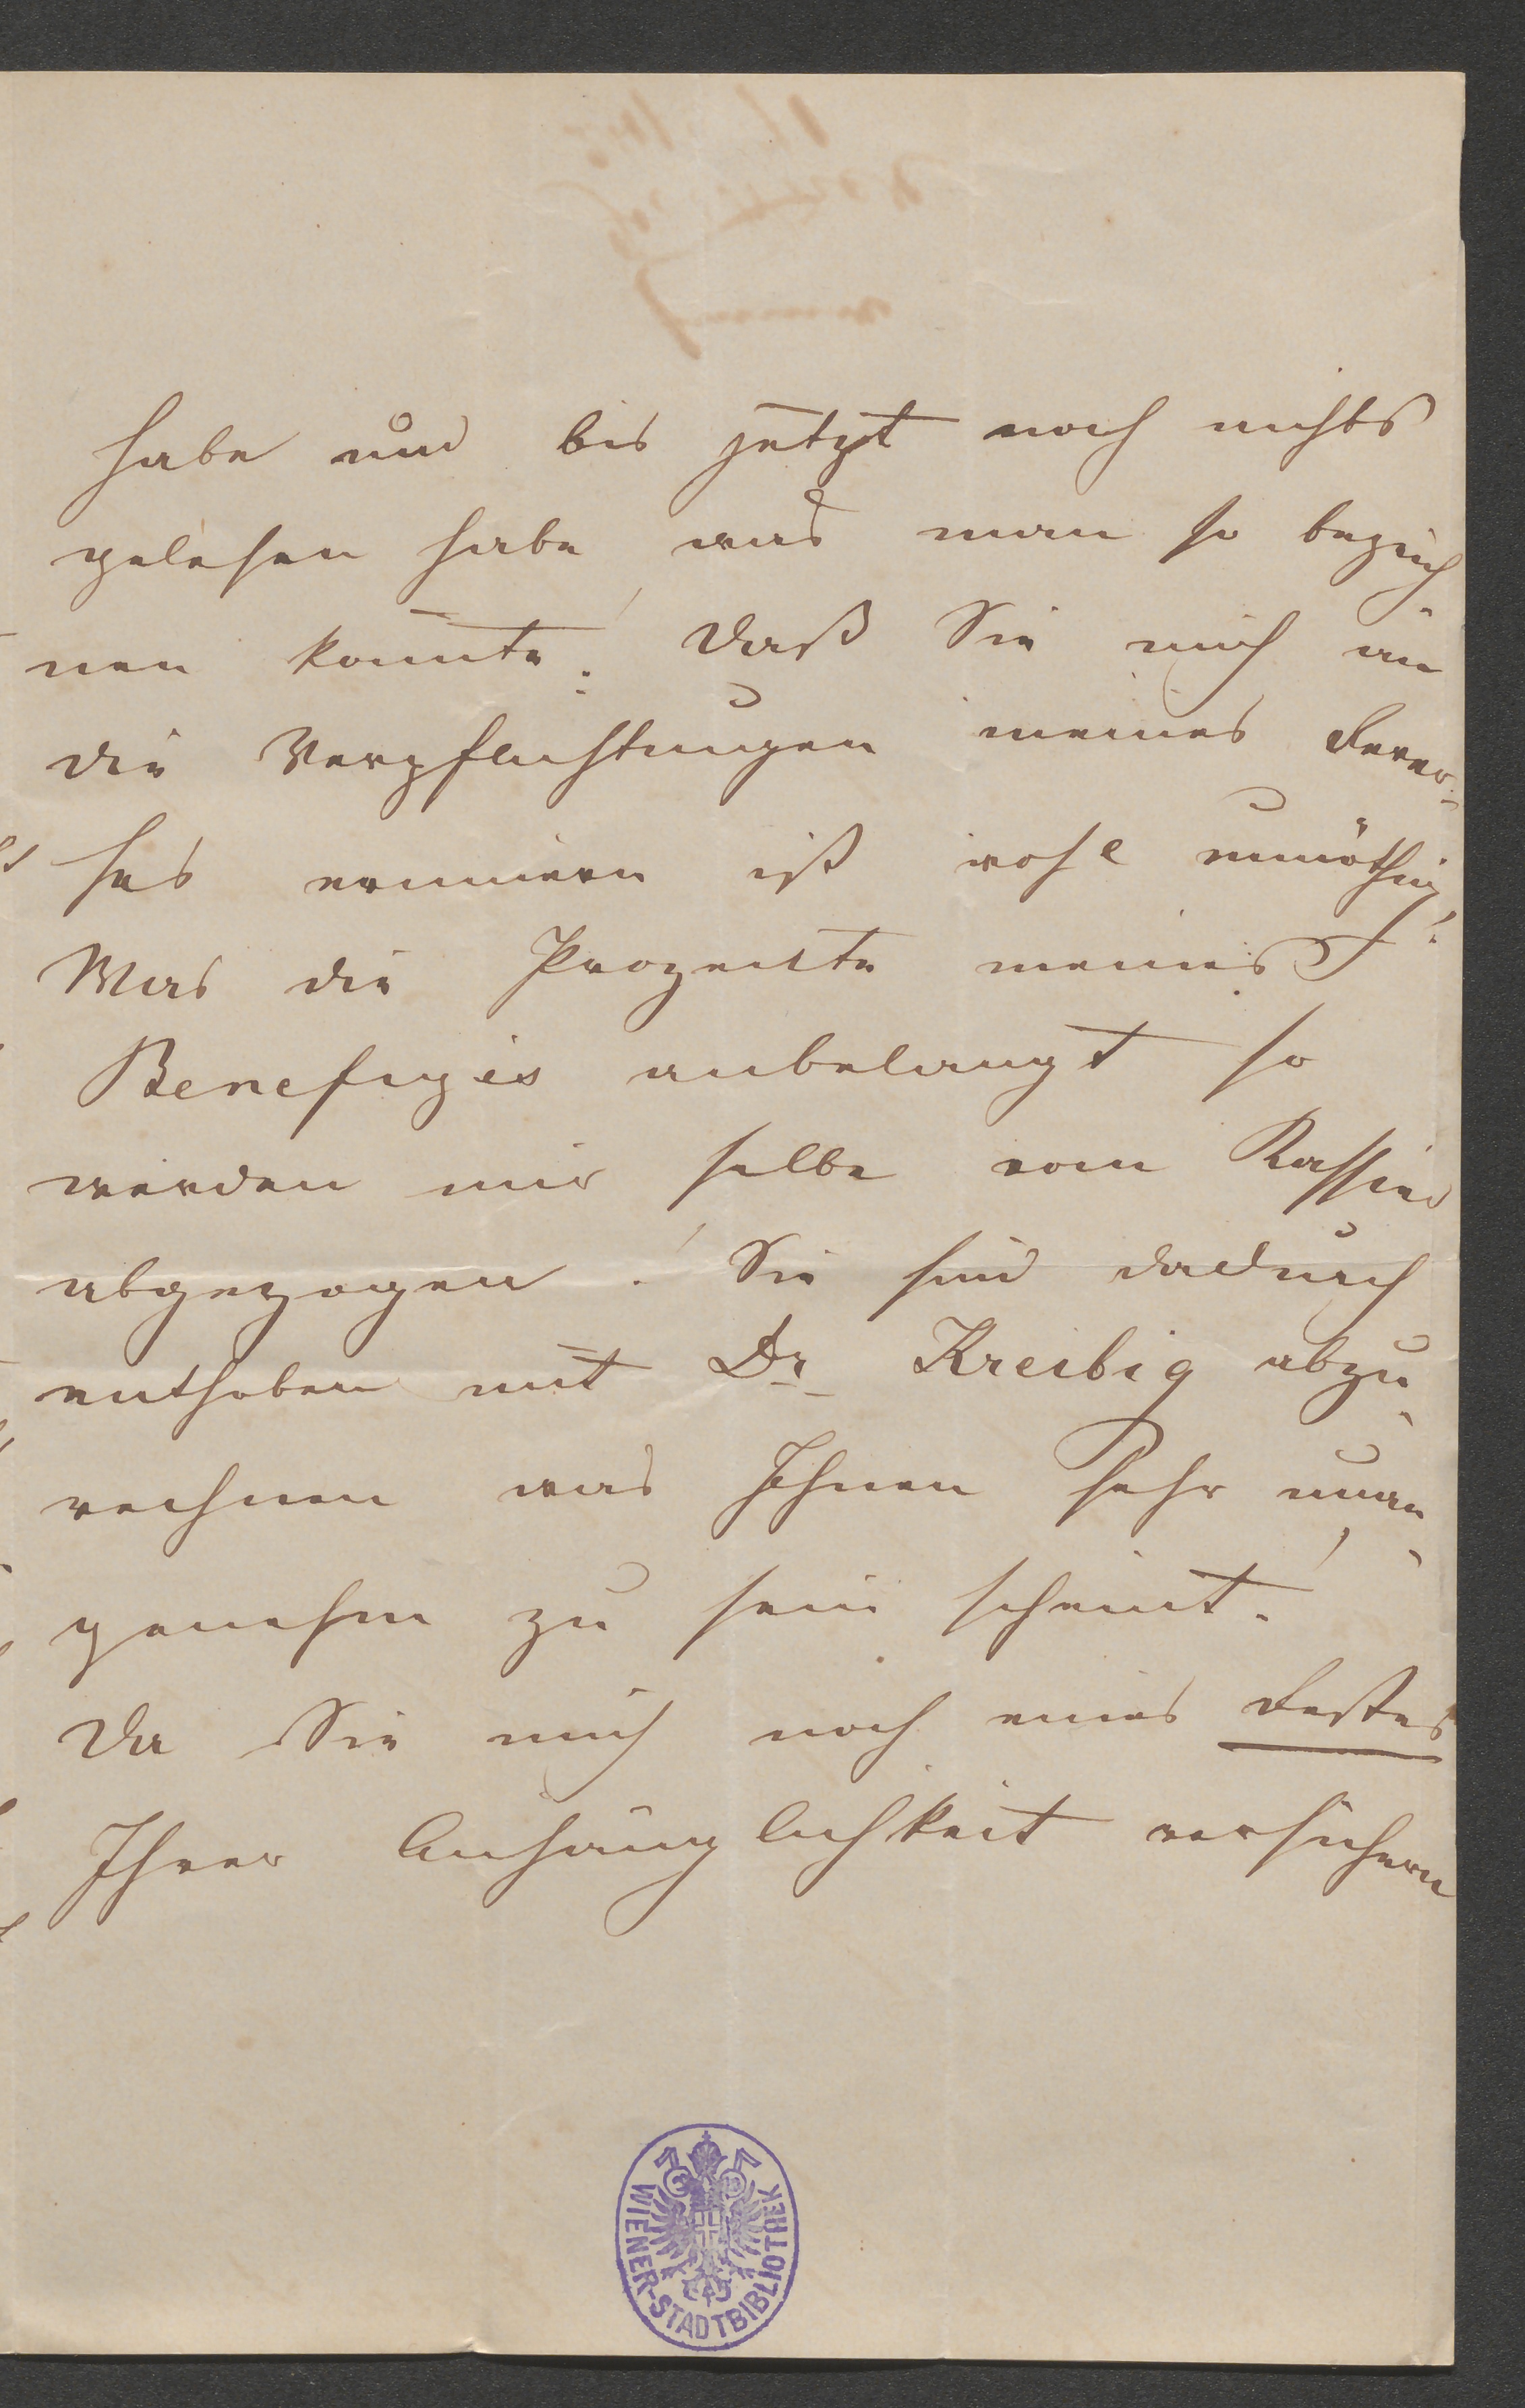 habe und bis jetzt noch nichts
gelesen habe was man so bezeich-
nen konnte! Daß Sie mich an
die Verpflichtungen meines
erinnern ist wohl unnöthig!
Was die Prozente meines
Benefizes anbelangt so
werden mir selbe vom Kassier
abgezogen! Sie sind dadurch
enthoben mit Dr Kreibig abzu-
rechnen was Ihnen sehr unan-
genehm zu sein scheint!
Da Sie mich noch eines Festes
Ihrer Anhänglichkeit versichern
WIENER-STADTBIBLIOTHEK